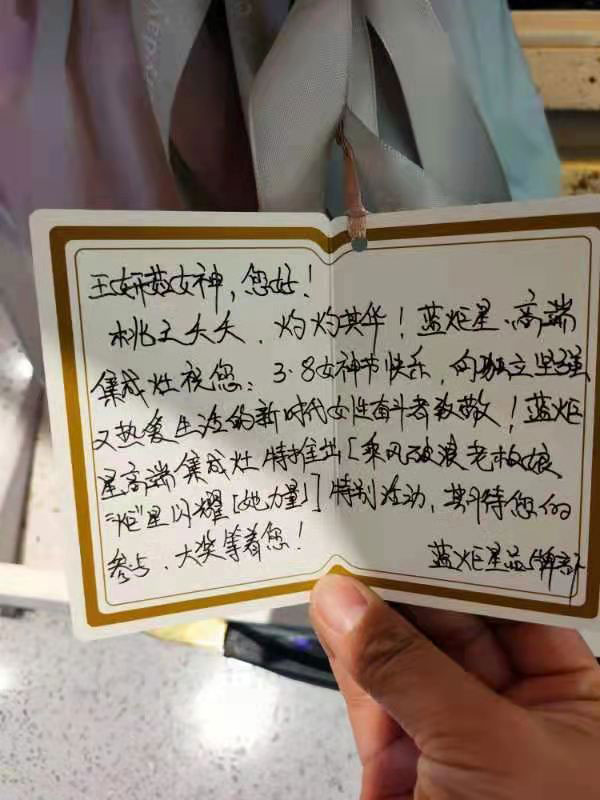 王妍茹女神，您好！
桃之夭夭，灼灼其华！蓝炬星高端
集成灶祝您：3·8女神节快乐，向独立坚强
又热爱生活的新时代女性奋斗者致敬！蓝炬
星高端集成灶特推出[乘风破浪老板娘
"炬"星闪耀[她力量]]特别活动，期待您的
参与，大奖等着您！
蓝炬星品牌部